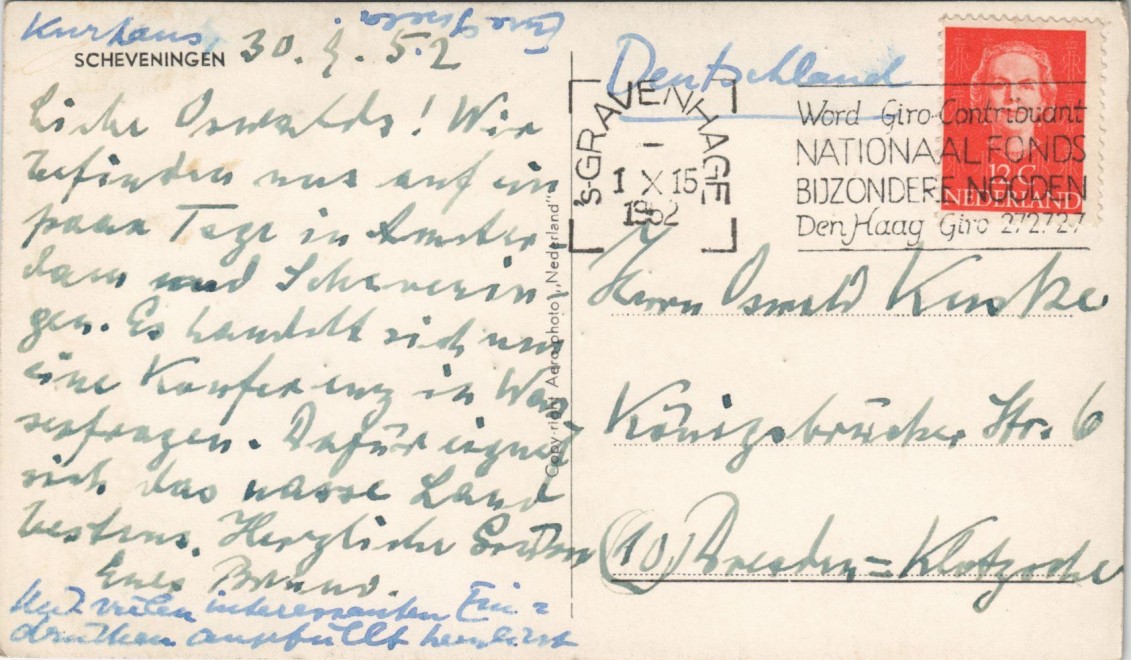 Kurhaus
SCHEVENINGEN 30. 9. 52
Liebe Oswalds! Wir
befinden uns auf ein
paar Tage in Amster
dam und Schevenin-
gen. Es handelt sich um
eine Konferenz in Was
serfragen. Dafür eignet
sich das nasse Land
bestens. Herzliche Grüße
Euer Bruno.
Mit vielen interessanten Ein=
drücken angefüllt
Eure Gisela
Copyright Aero-photo „Nederland"
Deutschland
's-GRAVENHAGE
1 X 15
1952
Word Giro-Contribuant
NATIONAAL FONDS
BIJZONDERE NOODEN
Den Haag Giro 272727
12 C
NEDERLAND
Herrn Oswald
Königsbrücker Str. 6
(10) Dresden=Klotzsche